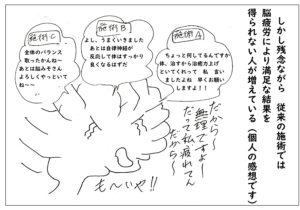 しかし残念ながら 従来の施術では
脳疲労により満足な結果を
得られない人が増えている（個人の感想です）
施術A
ちょっと何してるんですか
体、治すから治癒力上げ
といてくれって 私 言い
ましたよね 早くお願い
しますよ！！
施術B
よし、うまくいきました
あとは自律神経が
反応して体はすっかり
良くなるはずだ
施術C
全体のバランス
取ったかんね〜
あとは脳みそさん
よろしくやっといて
ね〜〜
だから〜
無理ですよ〜
だって私疲れてん
だから〜
も〜いや!!